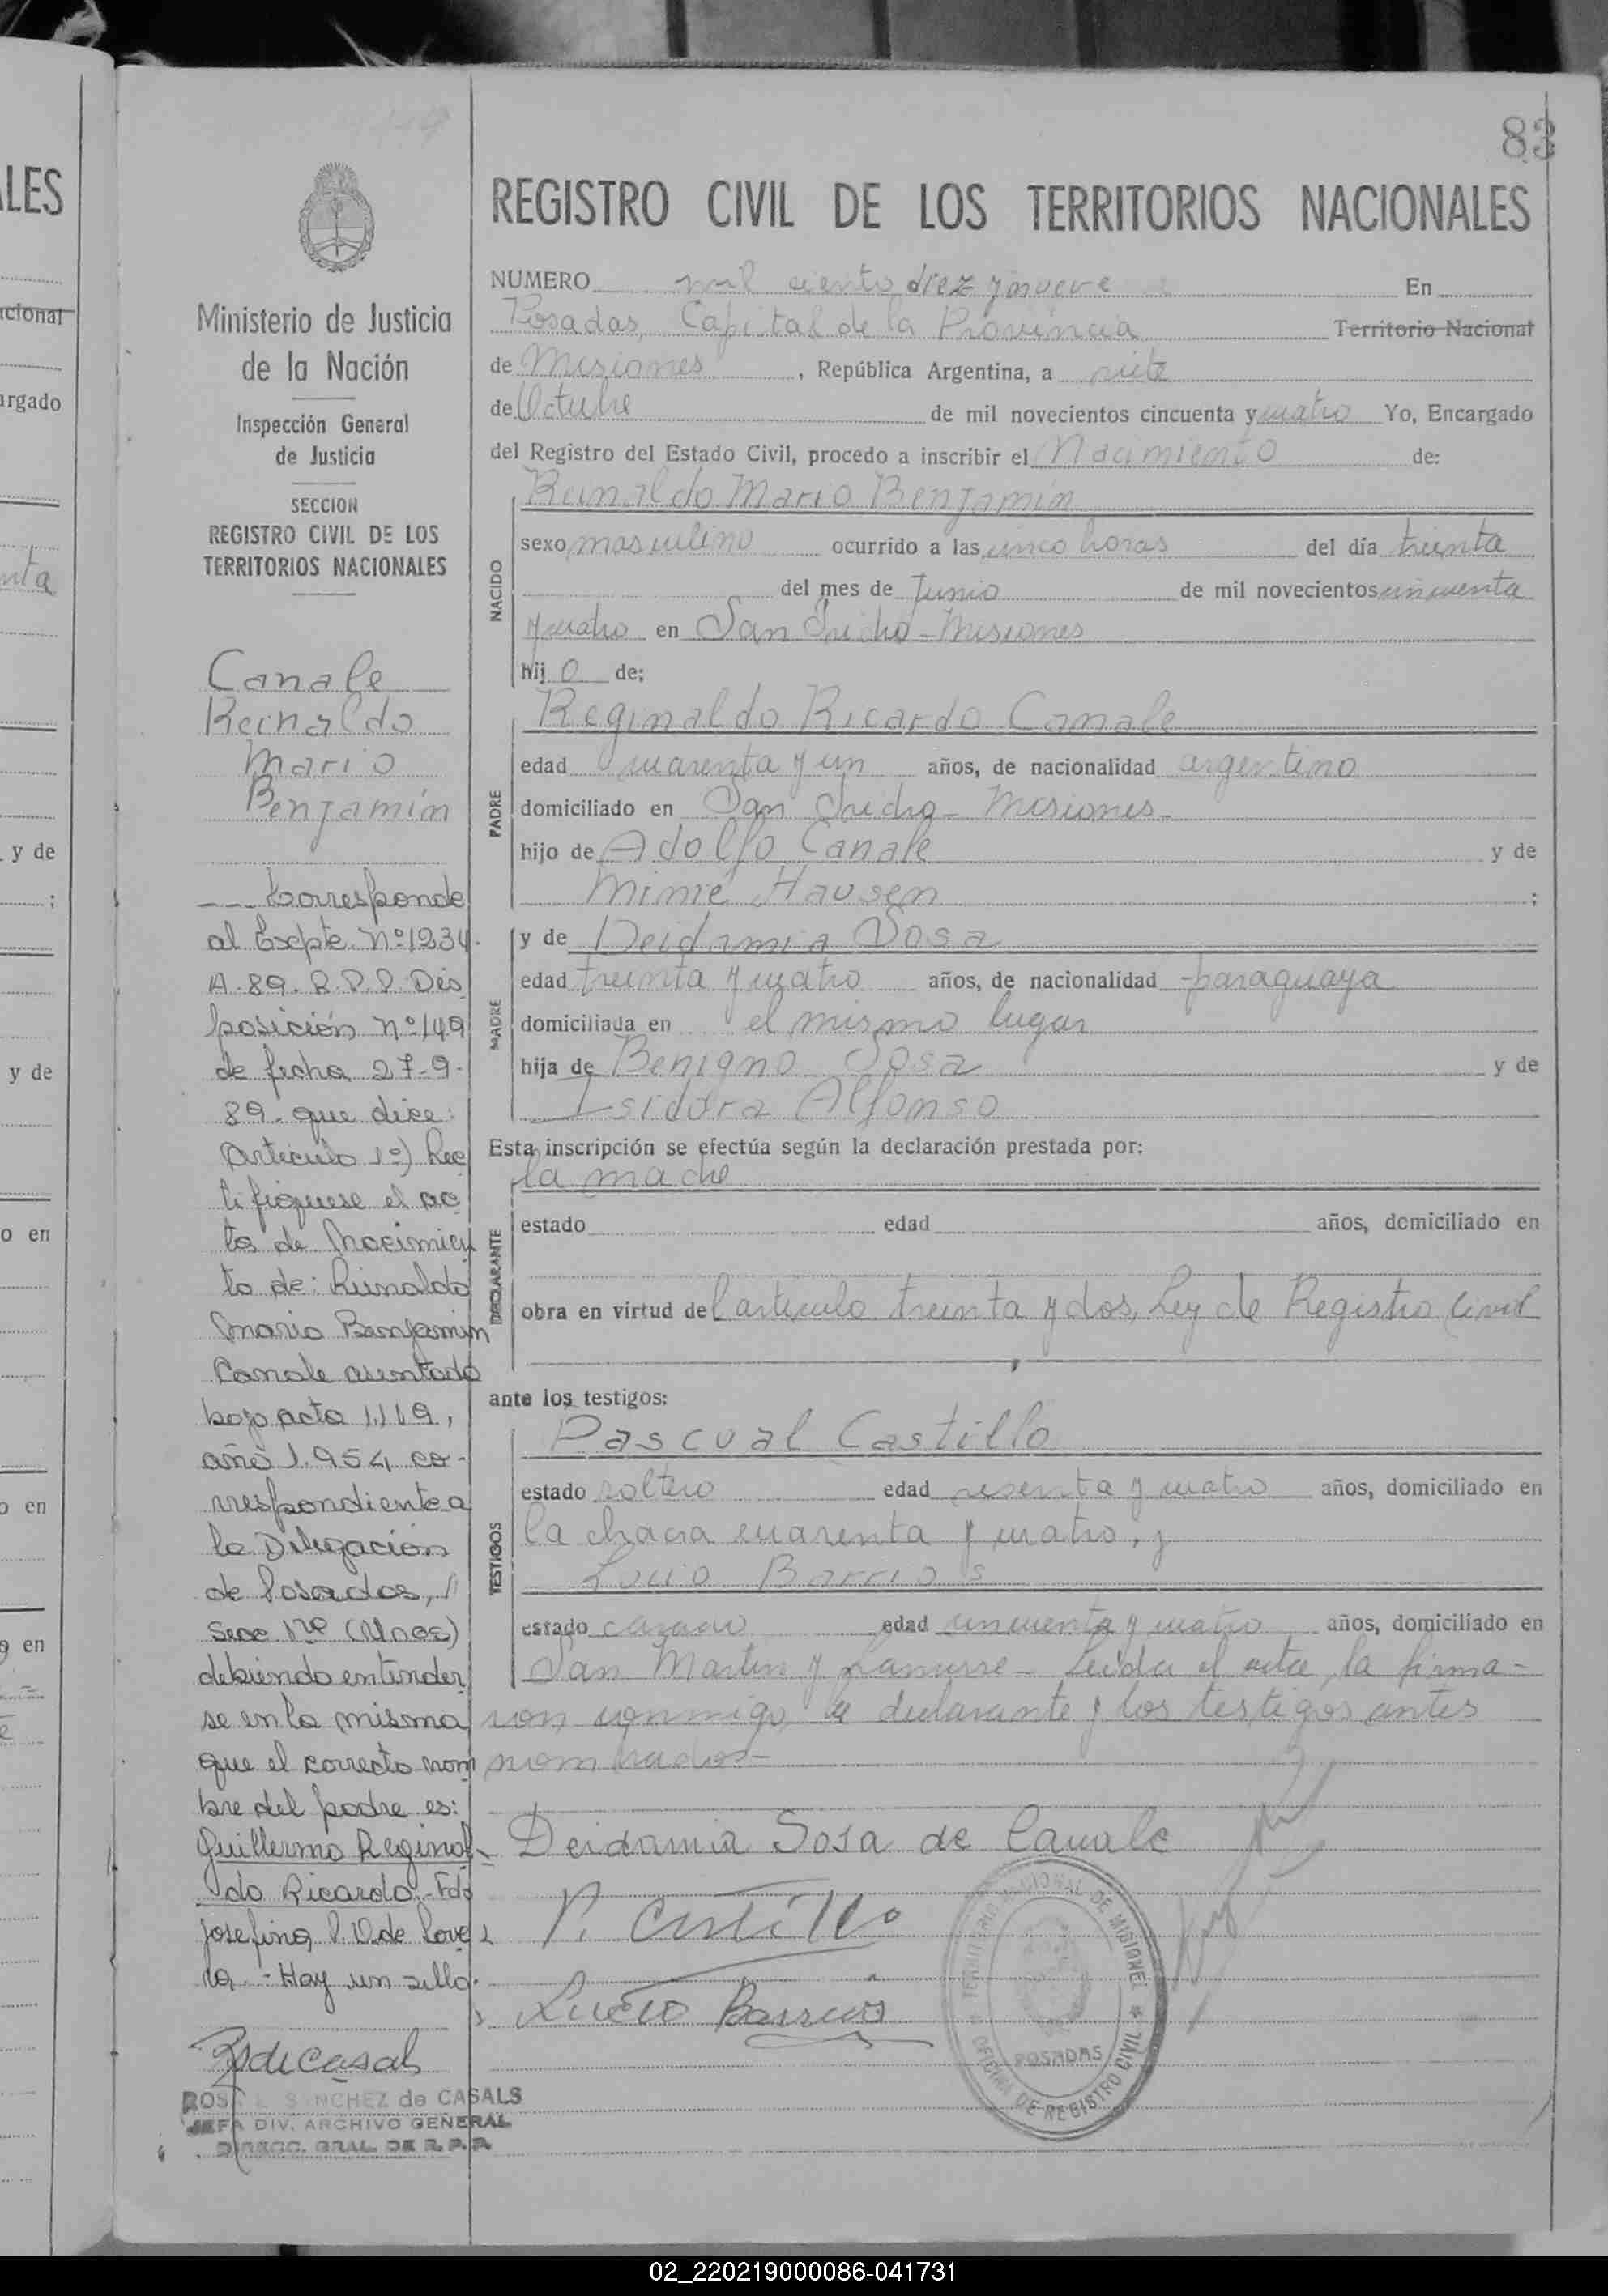 83
REGISTRO CIVIL DE LOS TERRITORIOS NACIONALES
Ministerio de Justicia
de la Nación
Inspección General
de Justicia
SECCION
REGISTRO CIVIL DE LOS
TERRITORIOS NACIONALES
Canale
Reinaldo
Mario
Benjamín
Corresponde
al Expte. Nº 1234.
A-89. R.P.P. Dis
posición Nº 149
de fecha 27-9-
89. que dice:
Artículo 1º) Rec
tifíquese el ac
ta de Nacimien
to de: Reinaldo
Mario Benjamin
Canale asentado
bajo acta 1.119,
año 1.954 co-
rrespondiente a
la Delegación
de Posadas,
Secc 1ra (Mnes)
debiendo entender
se en la misma
que el correcto nom
bre del padre es:
Guillermo Reginal
do Ricardo.- Fdo
Josefina P. O. de Love
ra - Hay un sello.
ROSA L. SANCHEZ de CASALS
JEFA DIV. ARCHIVO GENERAL
DIRECC. GRAL. DE R. P. P.
NUMERO mil ciento diez y nueve En
Posadas, Capital de la Provincia Territorio Nacional
de Misiones, República Argentina, a siete
de Octubre de mil novecientos cincuenta y cuatro Yo, Encargado
del Registro del Estado Civil, procedo a inscribir el Nacimiento de:
Reinaldo Mario Benjamín
NACIDO
sexo masculino ocurrido a las cinco horas del día treinta
del mes de Junio de mil novecientos cincuenta
y cuatro en San Isidro - Misiones
hij o de:
Reginaldo Ricardo Canale
PADRE
edad cuarenta y un años, de nacionalidad argentino
domiciliado en San Isidro - Misiones -
hijo de Adolfo Canale y de
Minie Hausen ;
MADRE
y de Deidamia Sosa
edad treinta y cuatro años, de nacionalidad paraguaya
domiciliada en el mismo lugar
hija de Benigno Sosa y de
Isidora Alfonso
Esta inscripción se efectúa según la declaración prestada por:
la madre
DECLARANTE
estado edad años, domiciliado en
obra en virtud del artículo treinta y dos, Ley de Registro Civil
ante los testigos:
Pascual Castillo
TESTIGOS
estado soltero edad sesenta y cuatro años, domiciliado en
la chacra cuarenta y cuatro, y
Lucio Barrios
estado casado edad cincuenta y cuatro años, domiciliado en
San Martin y Lanusse - Leída el acta, la firma-
ron conmigo, la declarante y los testigos antes
nombrados-
Deidamia Sosa de Canale
P. Castillo
Lucio Barrios
NACIONAL DE MISIONES
OFICINA DE REGISTRO CIVIL
POSADAS
LES
cional
argado
nta
y de
;
y de
o en
o en
o en
02_220219000086-041731